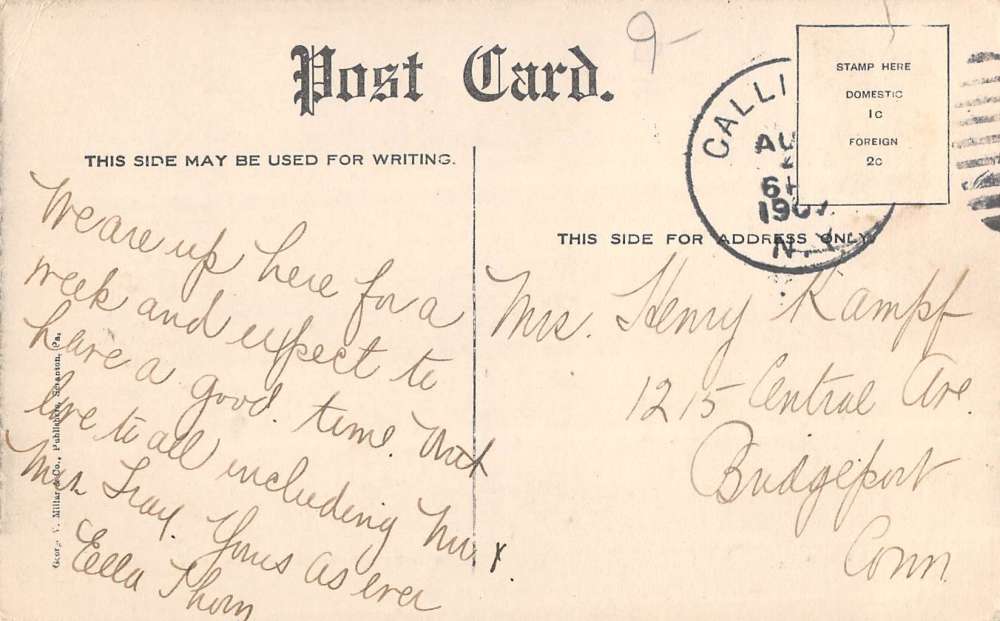 9-
Post Card.
STAMP HERE
DOMESTIC
1c
FOREIGN
2c
CALLI
AU
6
1907
N.Y.
THIS SIDE MAY BE USED FOR WRITING.
THIS SIDE FOR ADDRESS ONLY.
We are up here for a
week and expect to
have a good time. 
love to all including Mr &
Mrs. Yours as ever
Ella Thorn
Mrs. Henry Kampf
1215 Central Ave.
Bridgeport
Conn.
George V. Millar & Co., Publishers, Scranton, Pa.